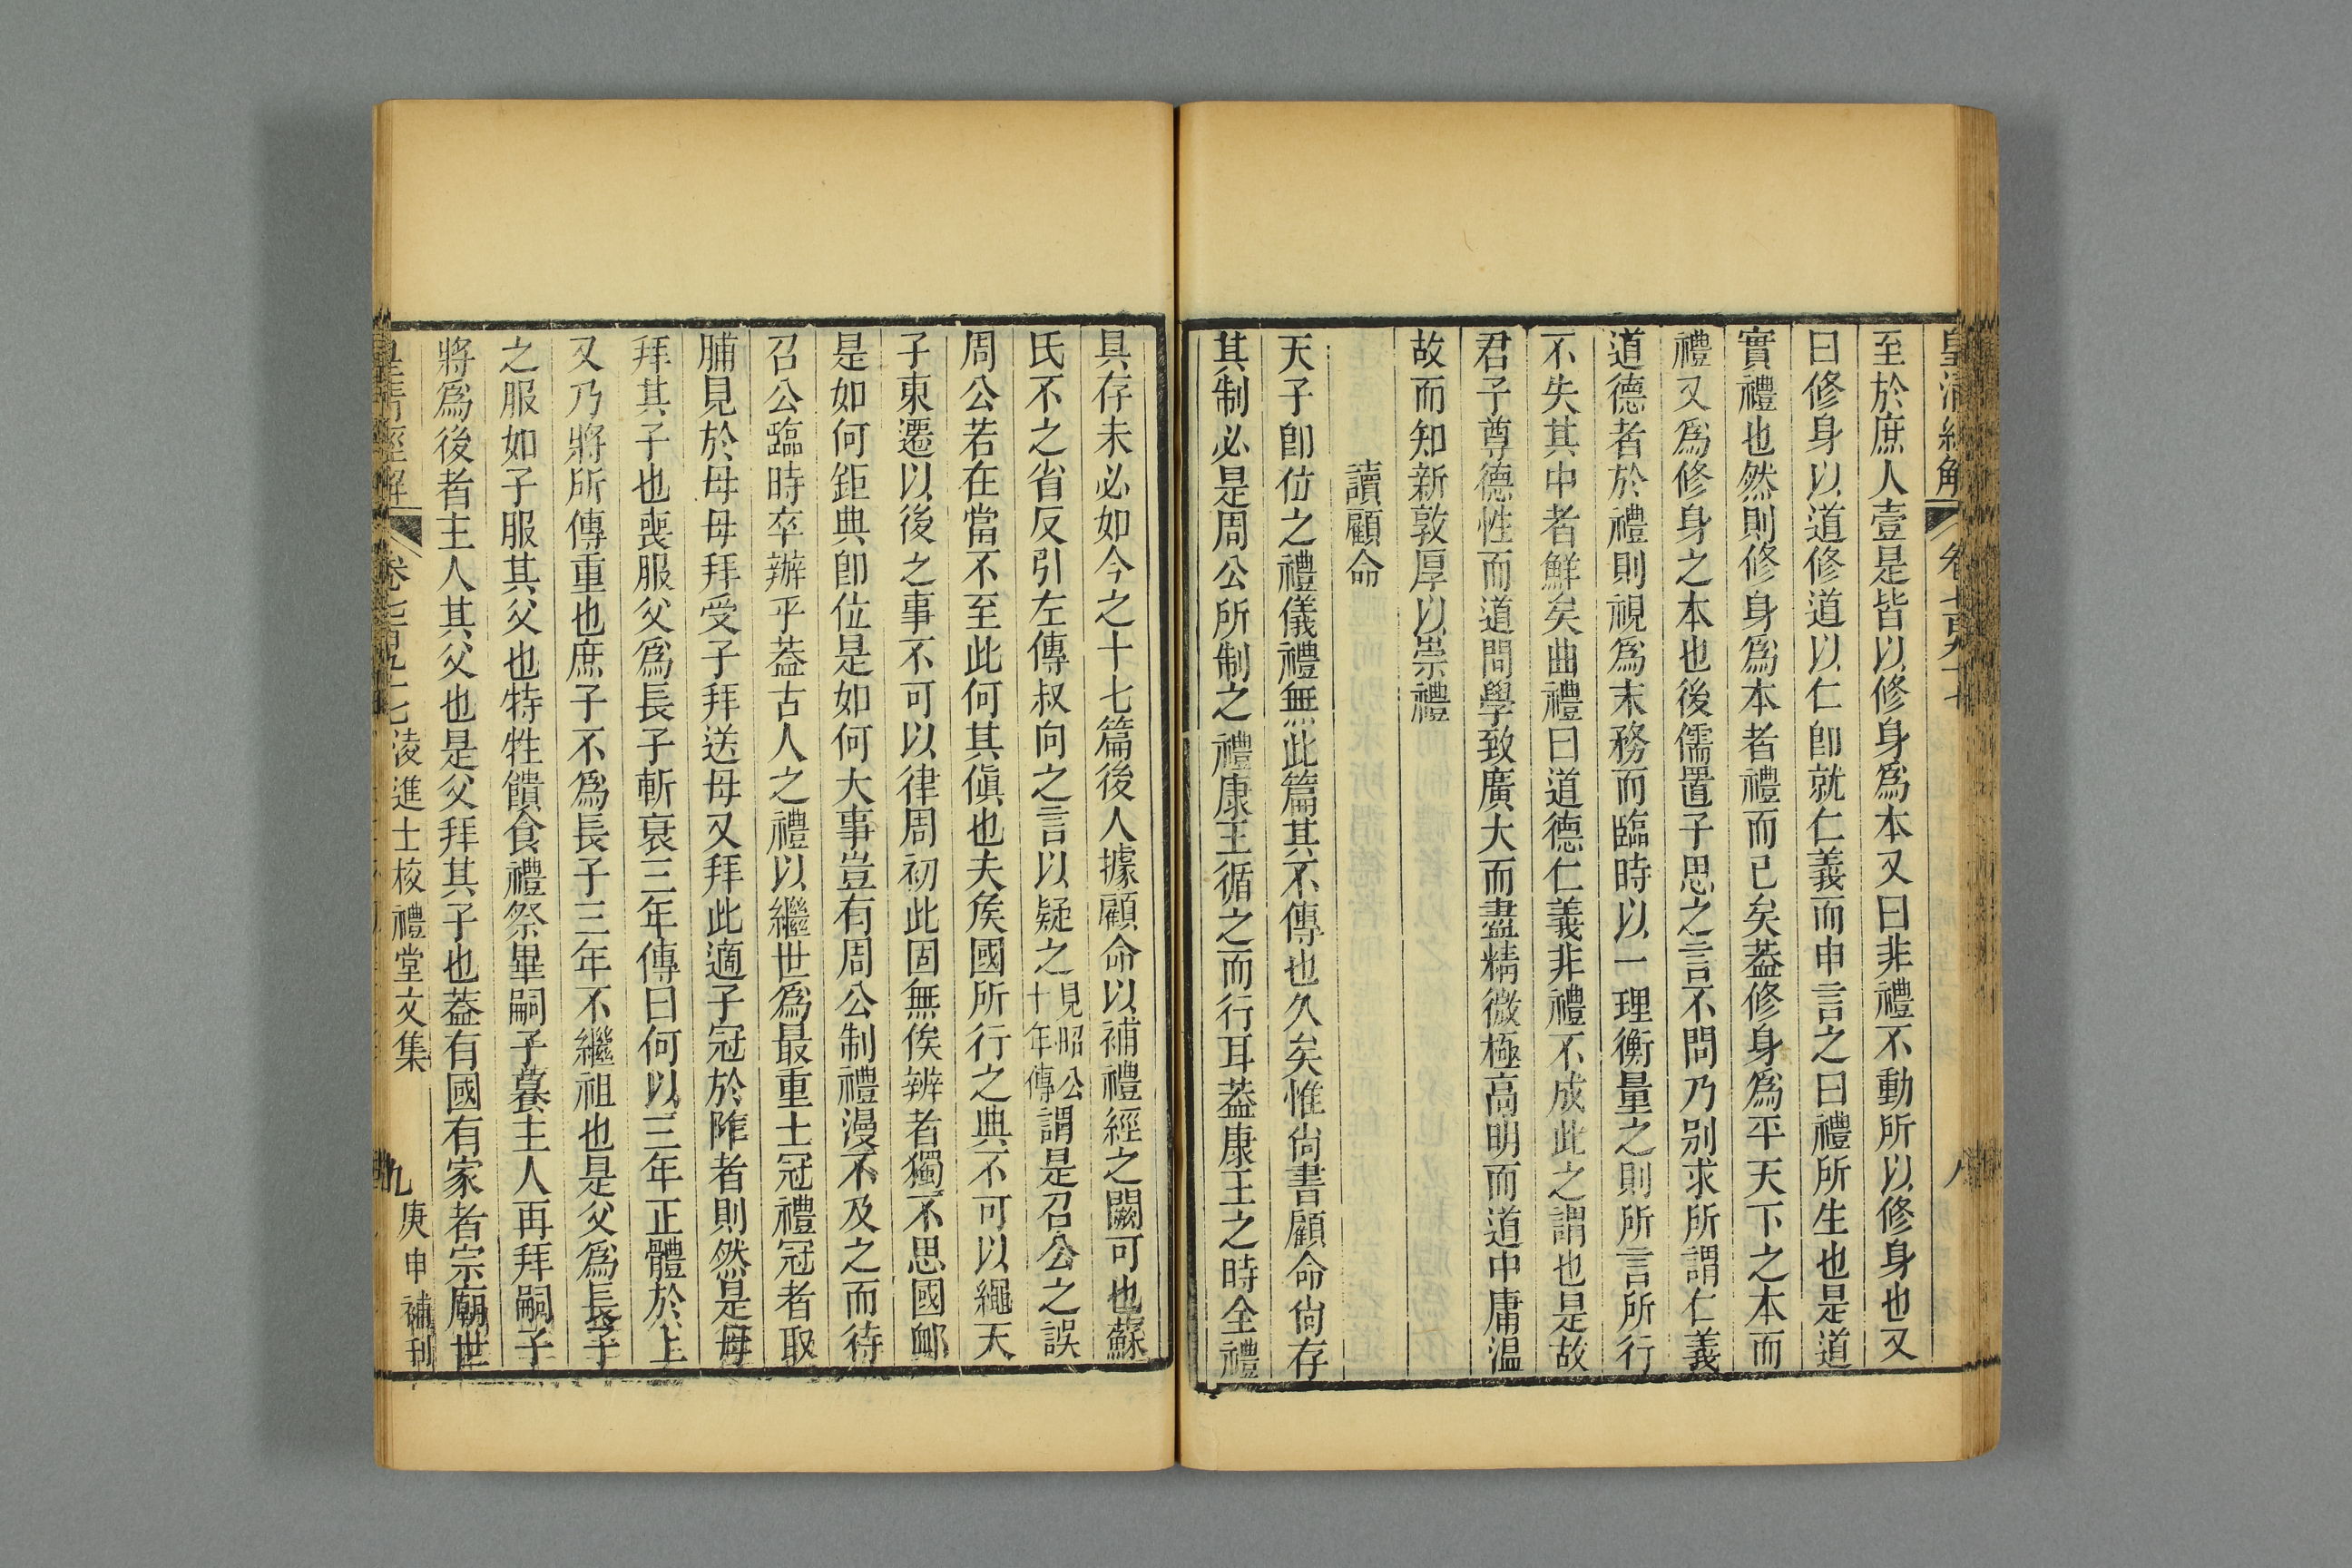 皇清經解 卷七百九十七 八
至於庶人壹是皆以修身爲本又曰非禮不動所以修身也又
曰修身以道修道以仁卽就仁義而申言之曰禮所生也是道
實禮也然則修身爲本者禮而已矣葢修身爲平天下之本而
禮又爲修身之本也後儒置子思之言不問乃别求所謂仁義
道德者於禮則視爲末務而臨時以一理衡量之則所言所行
不失其中者鮮矣曲禮曰道德仁義非禮不成此之謂也是故
君子尊德性而道問學致廣大而盡精微極高明而道中庸温
故而知新敦厚以崇禮
讀顧命
天子卽位之禮儀禮無此篇其不傳也久矣惟尙書顧命尙存
其制必是周公所制之禮康王循之而行耳葢康王之時全禮
具存未必如今之十七篇後人據顧命以補禮經之闕可也蘇
氏不之省反引左傳叔向之言以疑之見昭公十年傳謂是召公之誤
周公若在當不至此何其傎也夫矦國所行之典不可以繩天
子東遷以後之事不可以律周初此固無俟辨者獨不思國卹
是如何鉅典卽位是如何大事豈有周公制禮漫不及之而待
召公臨時卒辦乎葢古人之禮以繼世爲最重士冠禮冠者取
脯見於母母拜受子拜送母又拜此適子冠於阼者則然是母
拜其子也喪服父爲長子斬衰三年傳曰何以三年正體於上
又乃將所傳重也庶子不爲長子三年不繼祖也是父爲長子
之服如子服其父也特牲饋食禮祭畢嗣子䬸主人再拜嗣子
將爲後者主人其父也是父拜其子也葢有國有家者宗廟世
皇清經解 卷七百九十七 淩進士校禮堂文集 九 庚申補刊